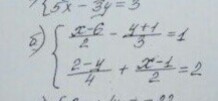 5x - 3y = 3
б) { (x-6)/2 - (y+1)/3 = 1
(2-y)/4 + (x-1)/2 = 2